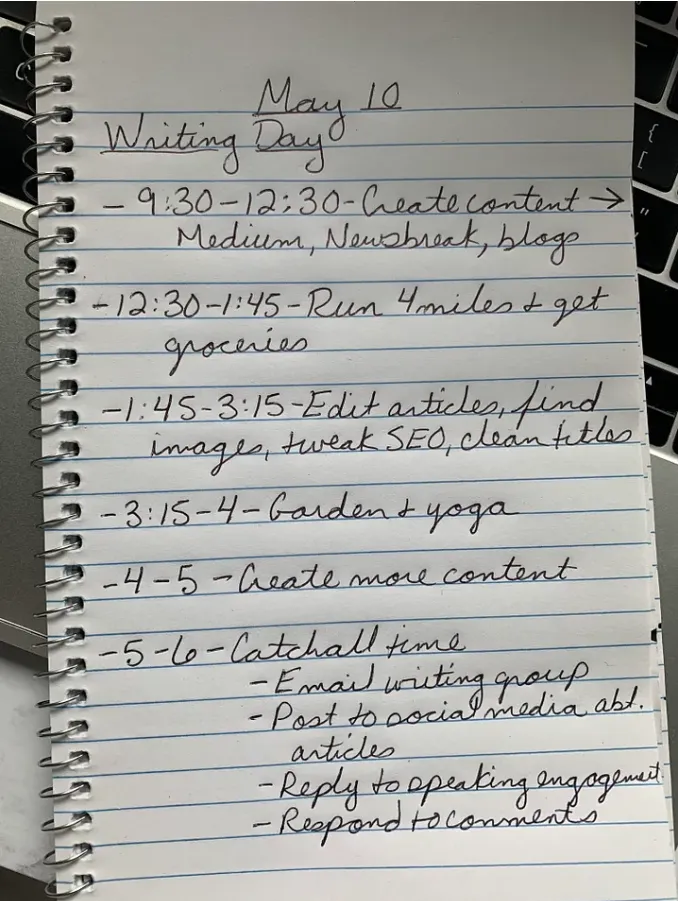 May 10
Writing Day
- 9:30-12:30-Create content →
Medium, Newsbreak, blogs
-12:30-1:45-Run 4 miles + get
groceries
-1:45-3:15-Edit articles, find
images, tweak SEO, clean titles
-3:15-4-Garden + yoga
-4-5-Create more content
-5-6-Catchall time
- Email writing group
- Post to social media abt.
articles
- Reply to speaking engagement
- Respond to comments
{
[
"
'